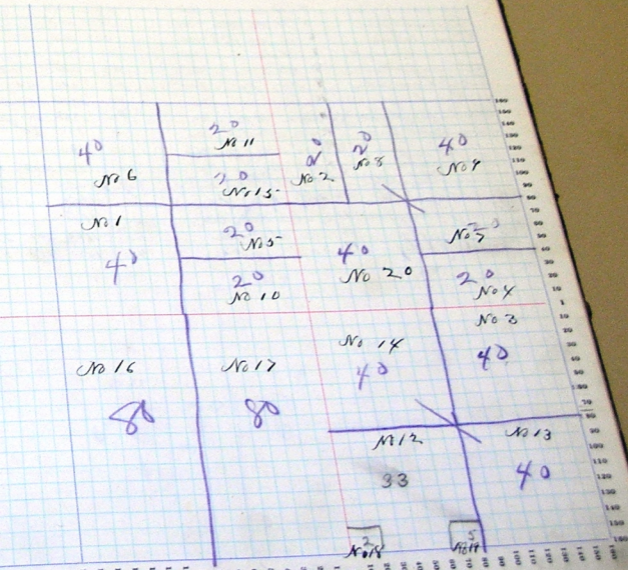 40
No 6
20
No 11
20
No 15
20
No 2
20
No 8
40
No 9
No 1
40
20
No 5
20
No 10
40
No 20
20
No 7
20
No 4
No 3
40
No 16
80
No 17
80
No 14
40
No 12
33
No 13
40
2
No 18
5
No 19